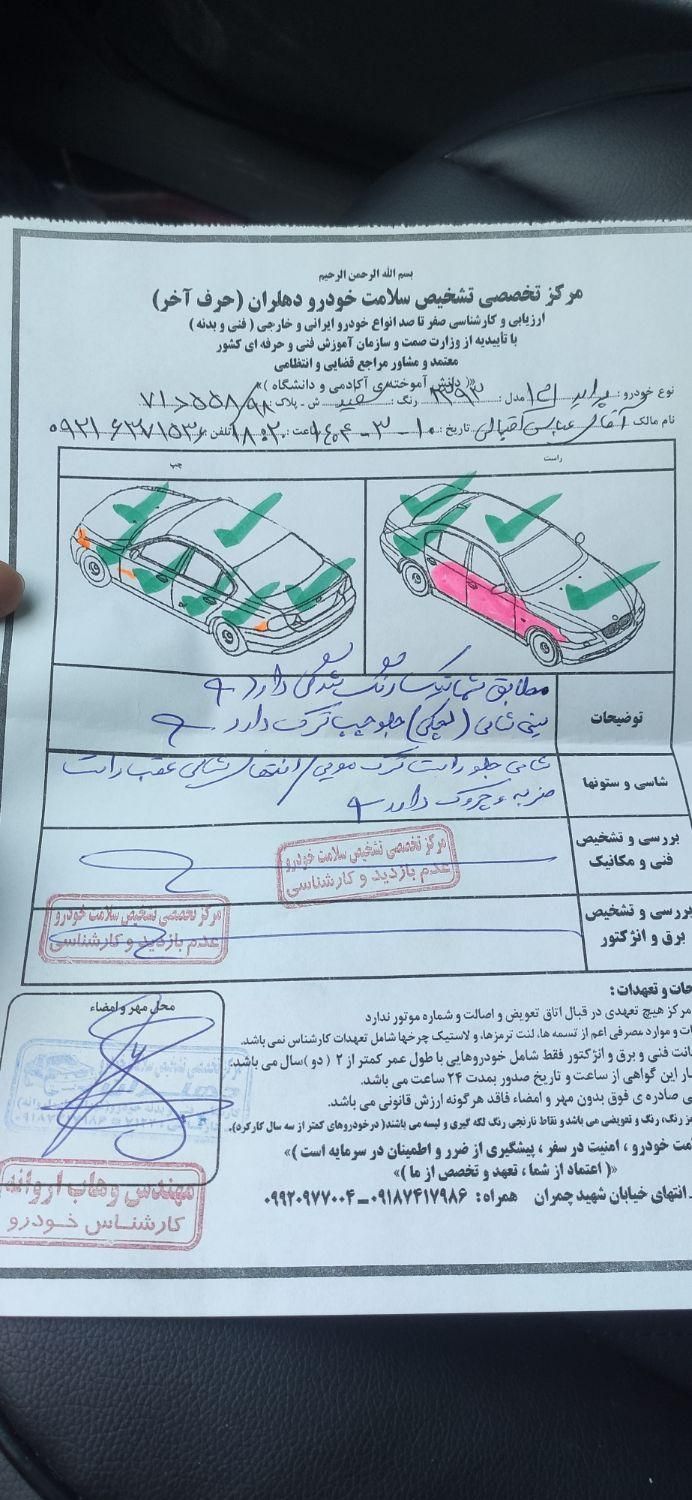 بسم الله الرحمن الرحیم
مرکز تخصصی تشخیص سلامت خودرو دهلران (حرف آخر)
ارزیابی و کارشناسی صفر تا صد انواع خودرو ایرانی و خارجی ( فنی و بدنه )
با تأییدیه از وزارت صمت و سازمان آموزش فنی و حرفه ای کشور
معتمد و مشاور مراجع قضایی و انتظامی
«( دانش آموخته‌ی آکادمی و دانشگاه )»
نوع خودرو: پراید مدل: رنگ: سفید ش - پلاک:
نام مالک آقای عباس تاریخ: ۱۴۰۴-۳-۱۰ ساعت: ۱۸:۰۲ تلفن:
راست
چپ
توضیحات
مطابق شماتیک رنگ شدگی دارد
سینی شاسی (لچکی) جلو چپ ترک دارد
شاسی و ستونها
شاسی جلو راست ترک مویی / انتهای شاسی عقب راست
ضربه و چروک دارد
بررسی و تشخیص
فنی و مکانیک
مرکز تخصصی تشخیص سلامت خودرو
عدم بازدید و کارشناسی
بررسی و تشخیص
برق و انژکتور
مرکز تخصصی تشخیص سلامت خودرو
عدم بازدید و کارشناسی
حات و تعهدات :
مرکز هیچ تعهدی در قبال اتاق تعویض و اصالت و شماره موتور ندارد
ات و موارد مصرفی اعم از تسمه ها، لنت ترمزها، و لاستیک چرخها شامل تعهدات کارشناس نمی باشد.
انت فنی و برق و انژکتور فقط شامل خودروهایی با طول عمر کمتر از ۲ ( دو )سال می باشد.
ار این گواهی از ساعت و تاریخ صدور بمدت ۲۴ ساعت می باشد.
ی صادره ی فوق بدون مهر و امضاء فاقد هرگونه ارزش قانونی می باشد.
مز رنگ، رنگ و تعویضی می باشد و نقاط نارنجی رنگ لکه گیری و لیسه می باشند( در خودروهای کمتر از سه سال کارکرد).
مت خودرو ، امنیت در سفر ، پیشگیری از ضرر و اطمینان در سرمایه است )»
«( اعتماد از شما ، تعهد و تخصص از ما )»
انتهای خیابان شهید چمران همراه : ۰۹۱۸۷۴۱۷۹۸۶ - ۰۹۹۲۰۹۷۷۰۰۴
محل مهر و امضاء
مهندس وهاب اروانه
کارشناس خودرو